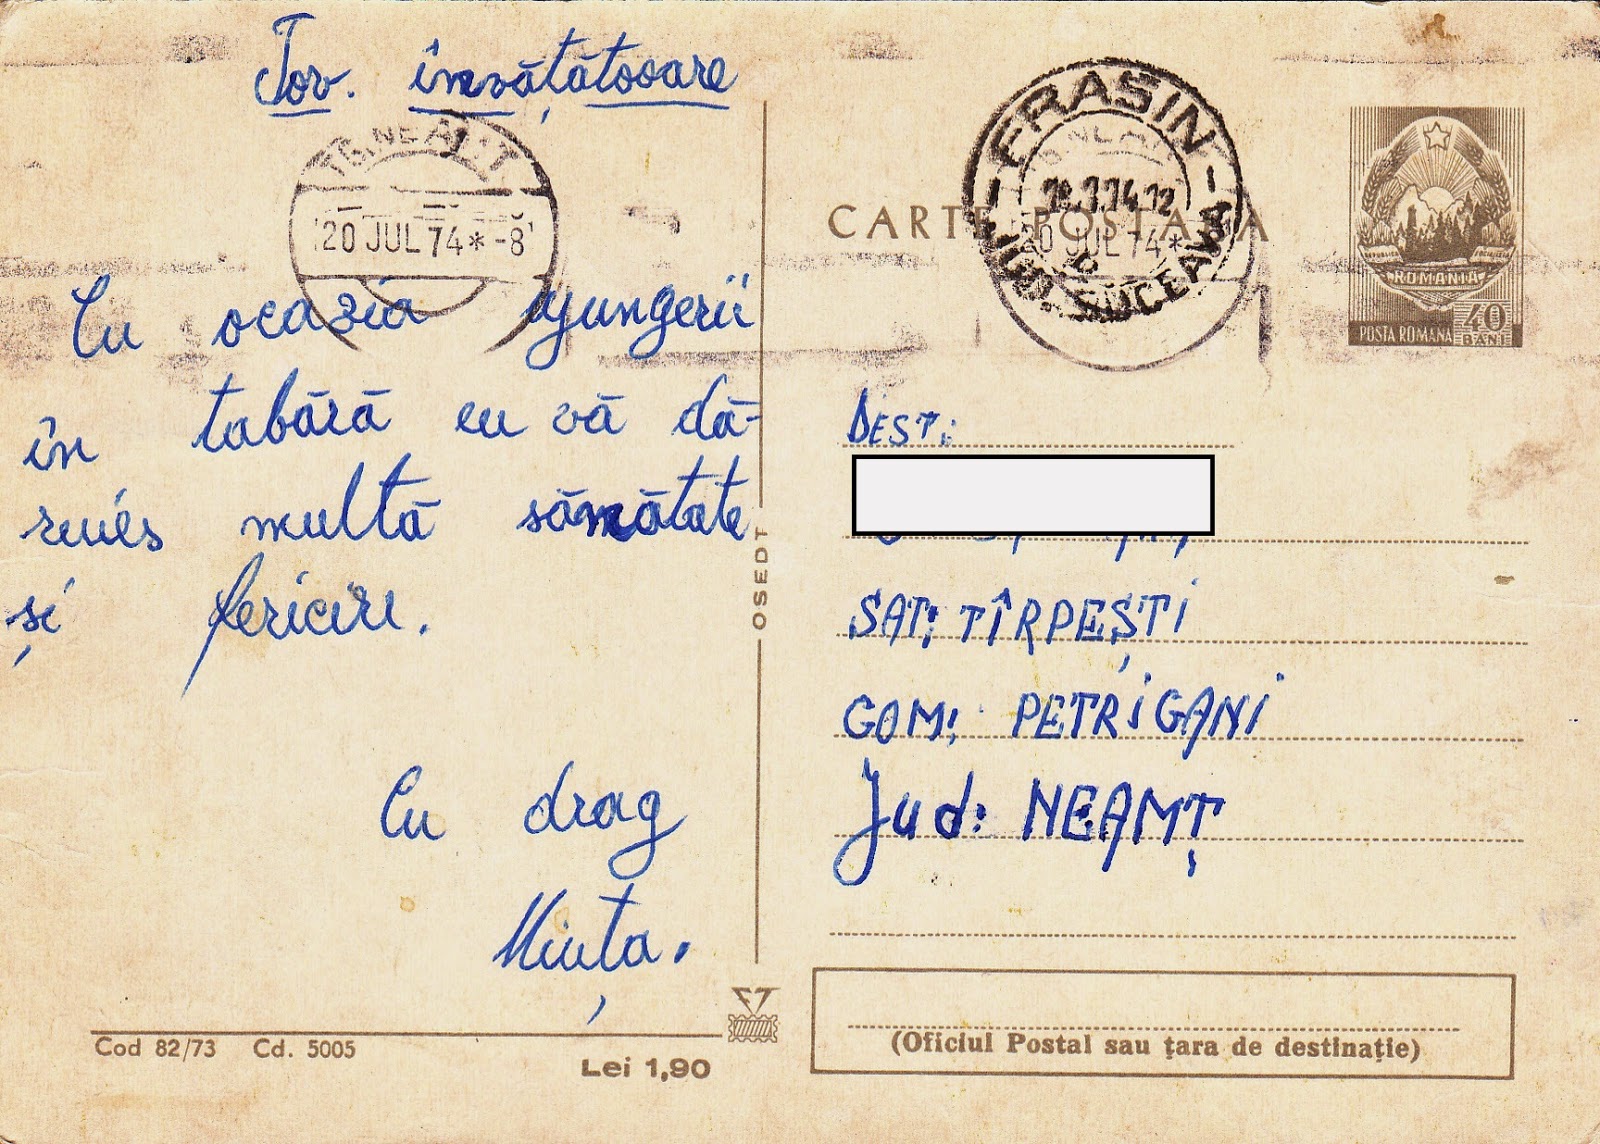 Tov. învățătooare
TG. NEAMȚ
20 JUL 74 * -8
Cu ocazia ajungerii
în tabără eu vă dă-
ruies multă sănătate
și fericire.
Cu drag
Miuța.
Cod 82/73 Cd. 5005
Lei 1,90
OSEDT
CARTE POSTALA
FRASIN
JUD. SUCEAVA
20 JUL 74 *
ROMANIA
POSTA ROMANA 40 BANI
DEST:
SAT: TÎRPEȘTI
COM: PETRIGANI
Jud: NEAMȚ
(Oficiul Postal sau țara de destinație)